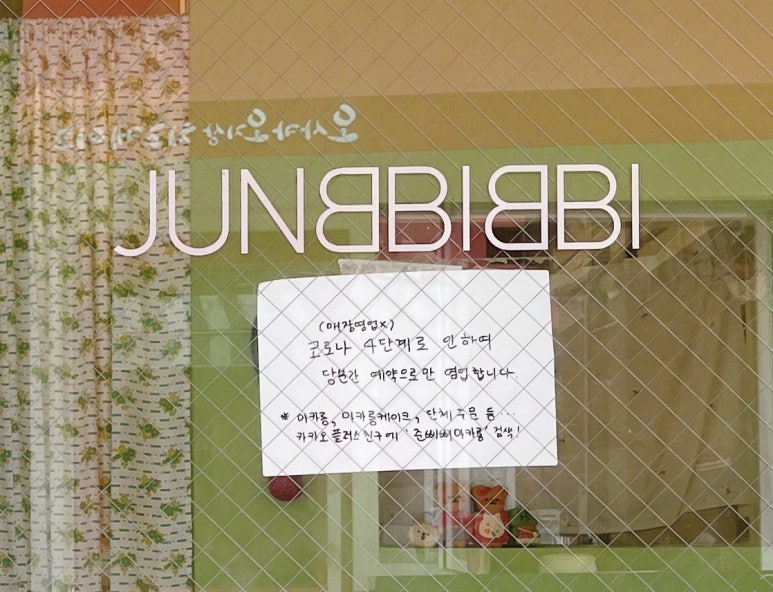 JUNBBIBBI
(매장영업x)
코로나 4단계로 인하여
당분간 예약으로만 영업합니다.
* 마카롱, 마카롱케이크, 단체주문 등...
카카오플러스친구에 '준삐삐마카롱' 검색!